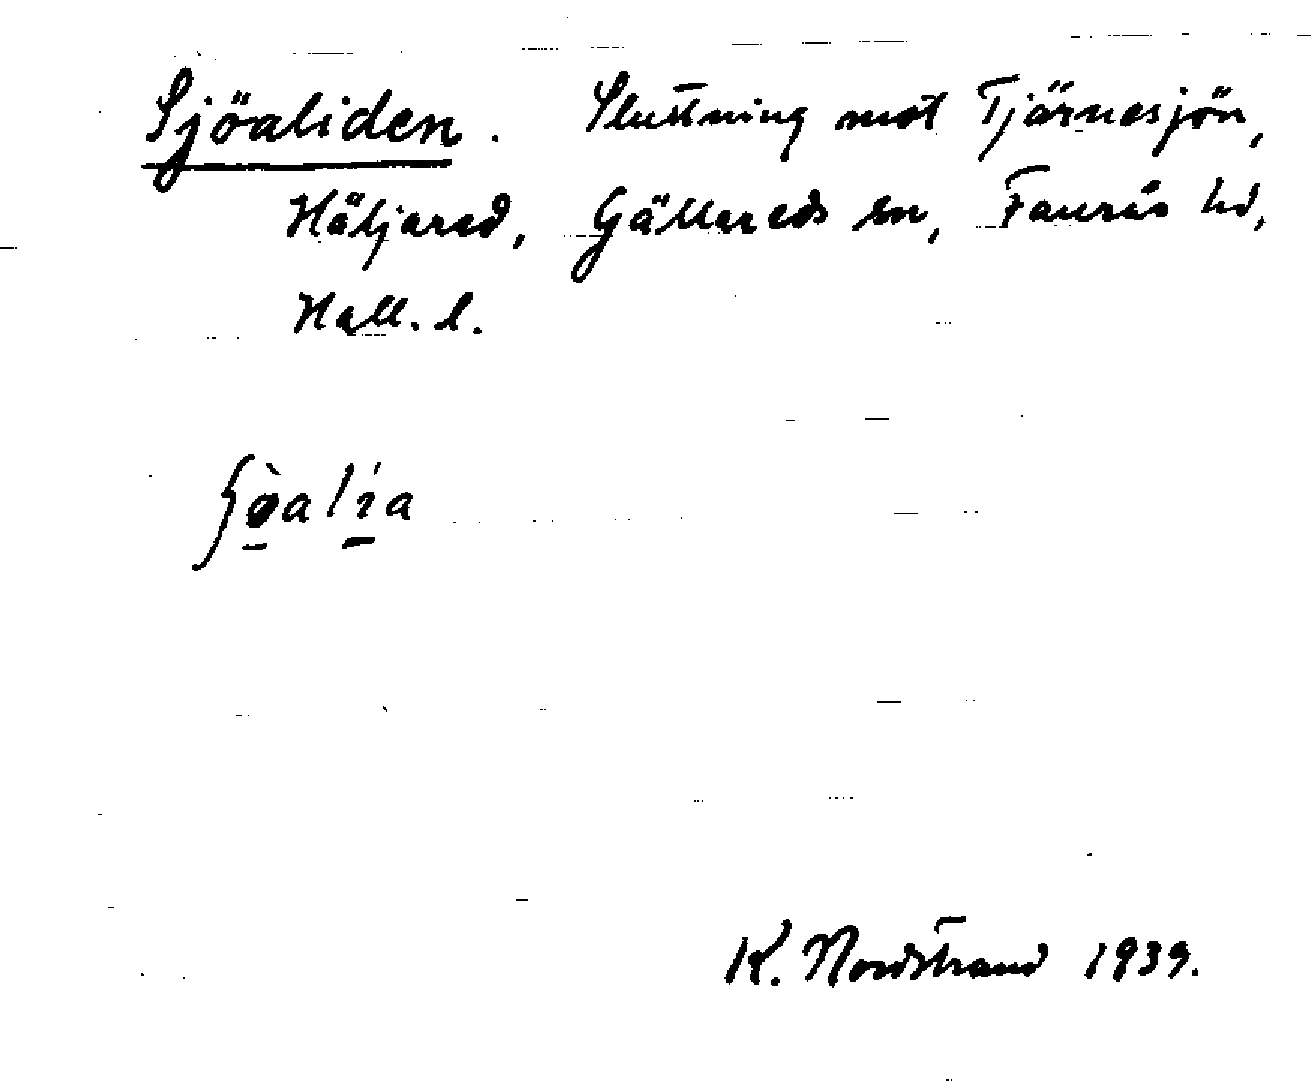 Sjöaliden. Sluttning mot Tjärnesjön,
Häljared, Gällareds sn, Faurås hd,
Hall. l.
ʃø̠̀alı̠́a
K. Nordstrand 1939.